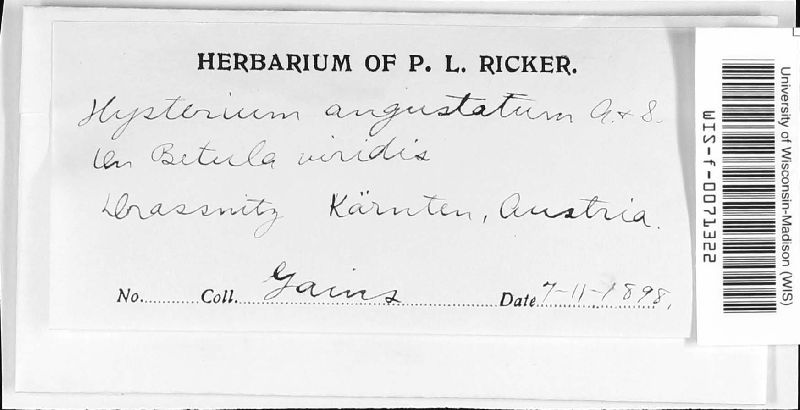 HERBARIUM OF P. L. RICKER.
Hysterium angustatum A. & S.
On Betula viridis
Drassnitz Kärnten, Austria.
No. Coll. Gains Date 7-11-1898.
University of Wisconsin-Madison (WIS)
WIS-f-0071322